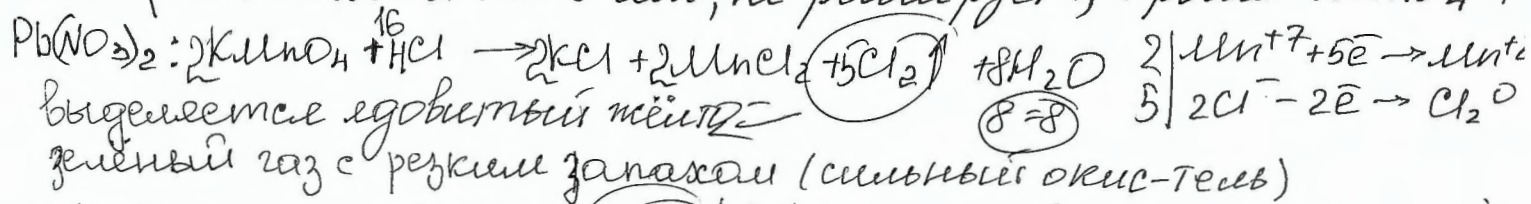 Pb(NO₃)₂: 2KMnO₄ + 16HCl → 2KCl + 2MnCl₂ + 5Cl₂↑ + 8H₂O 2|Mn⁺⁷ + 5ē → Mn⁺²
выделяется ядовитый жёлто- 8=8 5|2Cl⁻ - 2ē → Cl₂⁰
зелёный газ с резким запахом (сильный окис-тель)